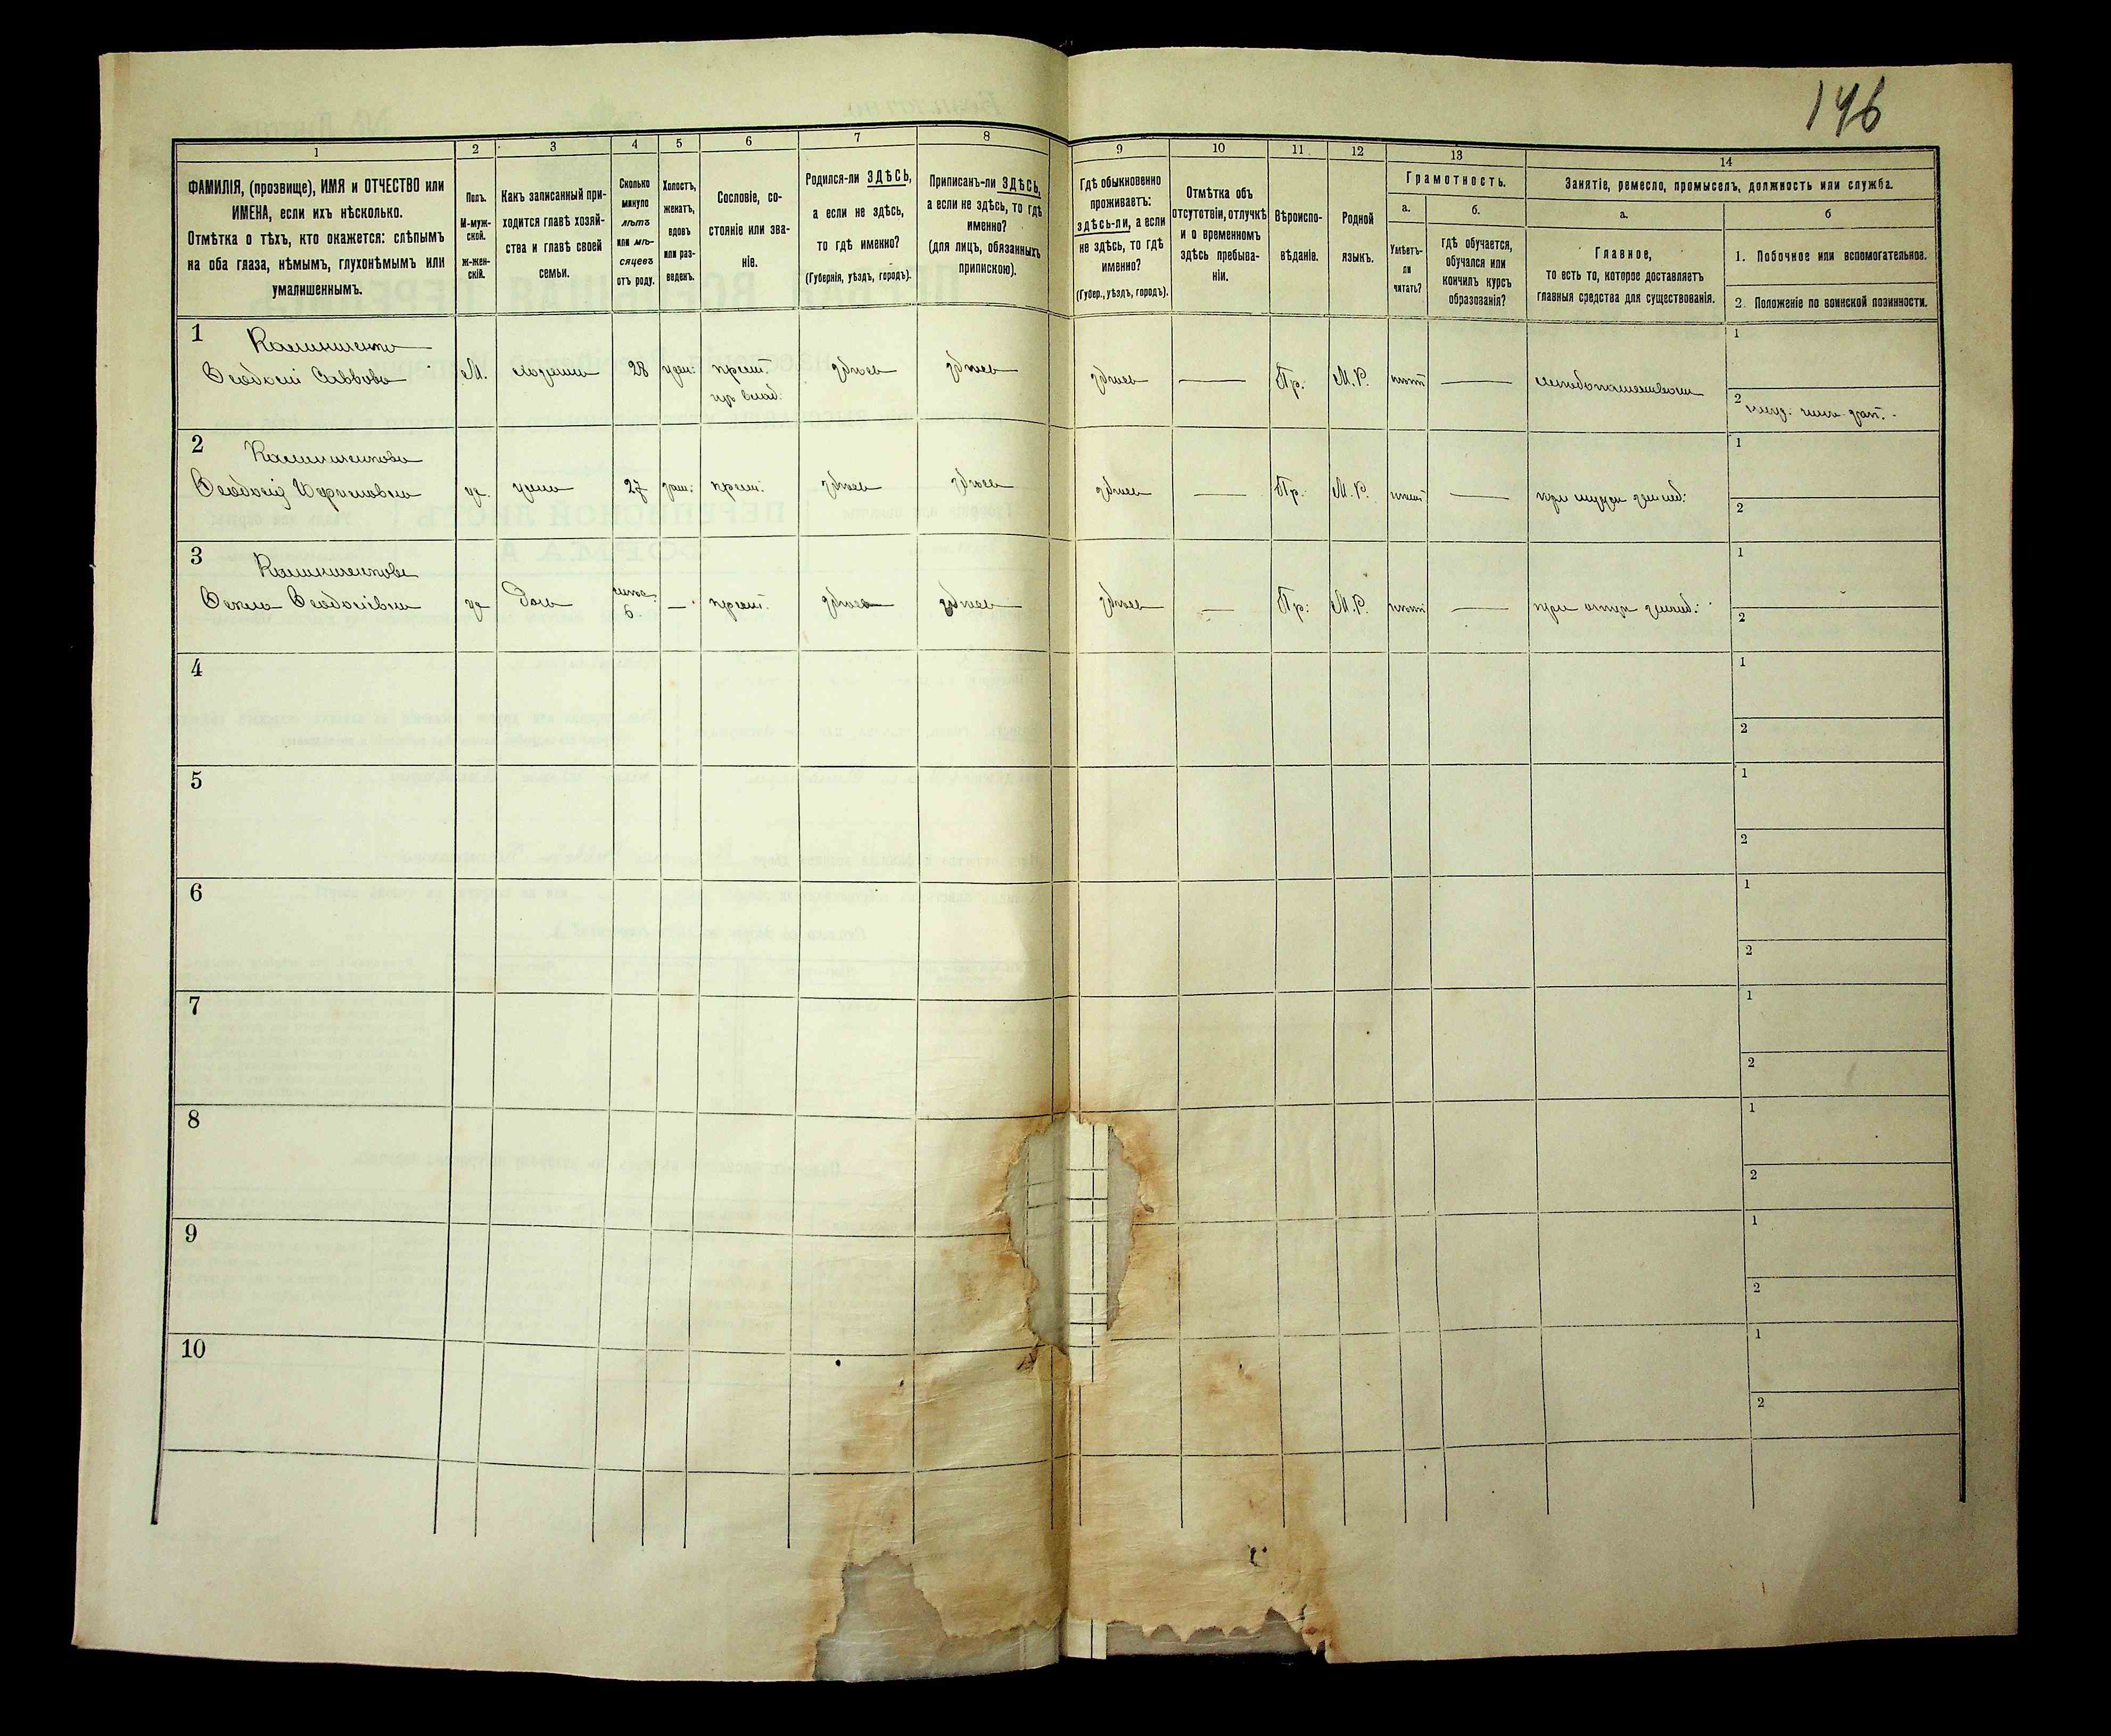 196
1
2
3
4
5
6
7
8
9
10
11
12
13
14
ФАМИЛІЯ, (прозвище), ИМЯ и ОТЧЕСТВО или
ИМЕНА, если ихъ нѣсколько.
Отмѣтка о тѣхъ, кто окажется: слѣпымъ
на оба глаза, нѣмымъ, глухонѣмымъ или
умалишеннымъ.
Полъ.
М-муж-
ской.
ж-жен-
скій.
Какъ записанный при-
ходится главѣ хозяй-
ства и главѣ своей
семьи.
Сколько
минуло
лѣтъ
или мѣ-
сяцевъ
отъ роду.
Холостъ,
женатъ,
вдовъ
или раз-
веденъ.
Сословіе, со-
стояніе или зва-
ніе.
Родился-ли ЗДѢСЬ,
а если не здѣсь,
то гдѣ именно?
(Губернія, уѣздъ, городъ).
Приписанъ-ли ЗДѢСЬ,
а если не здѣсь, то гдѣ
именно?
(для лицъ, обязанныхъ
припискою).
Гдѣ обыкновенно
проживаетъ:
здѣсь-ли, а если
не здѣсь, то гдѣ
именно?
(Губер., уѣздъ, городъ).
Отмѣтка объ
отсутствіи, отлучкѣ
и о временномъ
здѣсь пребыва-
ніи.
Вѣроиспо-
вѣданіе.
Родной
языкъ.
Грамотность.
а.
Умѣетъ-
ли
читать?
б.
гдѣ обучается,
обучался или
кончилъ курсъ
образованія?
Занятіе, ремесло, промыселъ, должность или служба.
а.
Главное,
то есть то, которое доставляетъ
главныя средства для существованія.
б
1. Побочное или вспомогательное.
2. Положеніе по воинской повинности.
1
Ѳеодосій Саввовъ
М. хозяинъ 28 жен: крест. здѣсь здѣсь здѣсь — Пр. М.Р. нѣтъ — хлѣбопашествомъ
1
2
2
Ѳеодосія
ж. жена 27 зам: крест: здѣсь здѣсь здѣсь — Пр. М.Р. нѣтъ — при мужѣ землед:
1
2
3
Ѳекла Ѳеодосіевна
ж дочь 6 — крест. здѣсь здѣсь здѣсь — Пр: М.Р. нѣтъ — при отцѣ землед:
1
2
4
1
2
5
1
2
6
1
2
7
1
2
8
1
2
9
1
2
10
1
2